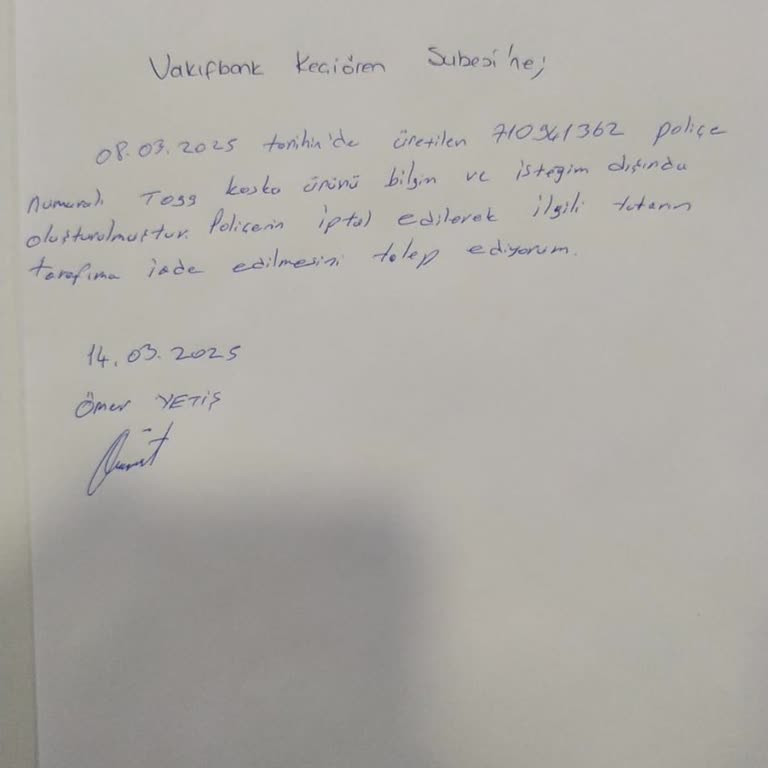 Vakıfbank Keçiören Şubesi'ne;
08.03.2025 tarihin'de üretilen 710941362 poliçe
numaralı Togg kasko ürünü bilgim ve isteğim dışında
oluşturulmuştur. Poliçenin iptal edilerek ilgili tutarın
tarafıma iade edilmesini talep ediyorum.
14.03.2025
Ömer YETİŞ